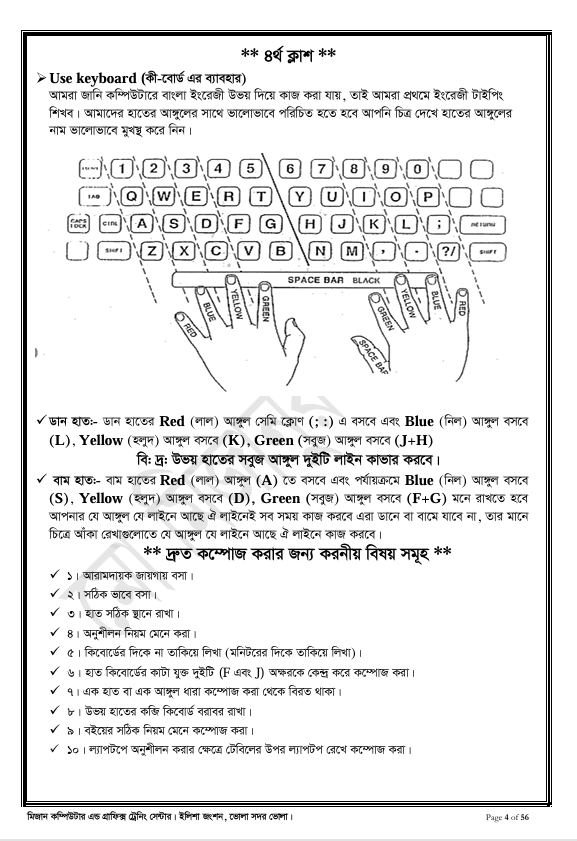 ** ৪র্থ ক্লাশ **
➢ Use keyboard (কী-বোর্ড এর ব্যাবহার)
আমরা জানি কম্পিউটারে বাংলা ইংরেজী উভয় দিয়ে কাজ করা যায়, তাই আমরা প্রথমে ইংরেজী টাইপিং
শিখব। আমাদের হাতের আঙ্গুলের সাথে ভালোভাবে পরিচিত হতে হবে আপনি চিত্র দেখে হাতের আঙ্গুলের
নাম ভালোভাবে মুখস্থ করে নিন।
1 2 3 4 5 6 7 8 9 0
TAB Q W E R T Y U I O P
CAPS LOCK CTRL A S D F G H J K L ; RETURN
SHIFT Z X C V B N M , . ?/ SHIFT
SPACE BAR BLACK
RED BLUE YELLOW GREEN GREEN YELLOW BLUE RED
SPACE BAR
✓ ডান হাত:- ডান হাতের Red (লাল) আঙ্গুল সেমি ক্লোণ (; :) এ বসবে এবং Blue (নিল) আঙ্গুল বসবে
(L), Yellow (হলুদ) আঙ্গুল বসবে (K), Green (সবুজ) আঙ্গুল বসবে (J+H)
বি: দ্র: উভয় হাতের সবুজ আঙ্গুল দুইটি লাইন কাভার করবে।
✓ বাম হাত:- বাম হাতের Red (লাল) আঙ্গুল (A) তে বসবে এবং পর্যায়ক্রমে Blue (নিল) আঙ্গুল বসবে
(S), Yellow (হলুদ) আঙ্গুল বসবে (D), Green (সবুজ) আঙ্গুল বসবে (F+G) মনে রাখতে হবে
আপনার যে আঙ্গুল যে লাইনে আছে ঐ লাইনেই সব সময় কাজ করবে এরা ডানে বা বামে যাবে না, তার মানে
চিত্রে আঁকা রেখাগুলোতে যে আঙ্গুল যে লাইনে আছে ঐ লাইনে কাজ করবে।
** দ্রুত কম্পোজ করার জন্য করনীয় বিষয় সমূহ **
✓ ১। আরামদায়ক জায়গায় বসা।
✓ ২। সঠিক ভাবে বসা।
✓ ৩। হাত সঠিক স্থানে রাখা।
✓ ৪। অনুশীলন নিয়ম মেনে করা।
✓ ৫। কিবোর্ডের দিকে না তাকিয়ে লিখা (মনিটরের দিকে তাকিয়ে লিখা)।
✓ ৬। হাত কিবোর্ডের কাটা যুক্ত দুইটি (F এবং J) অক্ষরকে কেন্দ্র করে কম্পোজ করা।
✓ ৭। এক হাত বা এক আঙ্গুল ধারা কম্পোজ করা থেকে বিরত থাকা।
✓ ৮। উভয় হাতের কব্জি কিবোর্ড বরাবর রাখা।
✓ ৯। বইয়ের সঠিক নিয়ম মেনে কম্পোজ করা।
✓ ১০। ল্যাপটপে অনুশীলন করার ক্ষেত্রে টেবিলের উপর ল্যাপটপ রেখে কম্পোজ করা।
মিজান কম্পিউটার এন্ড গ্রাফিক্স ট্রেনিং সেন্টার। ইলিশা জংশন, ভোলা সদর ভোলা।
Page 4 of 56